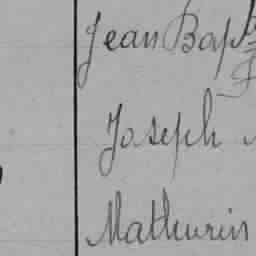 Jean Bap
Joseph
Mathurin